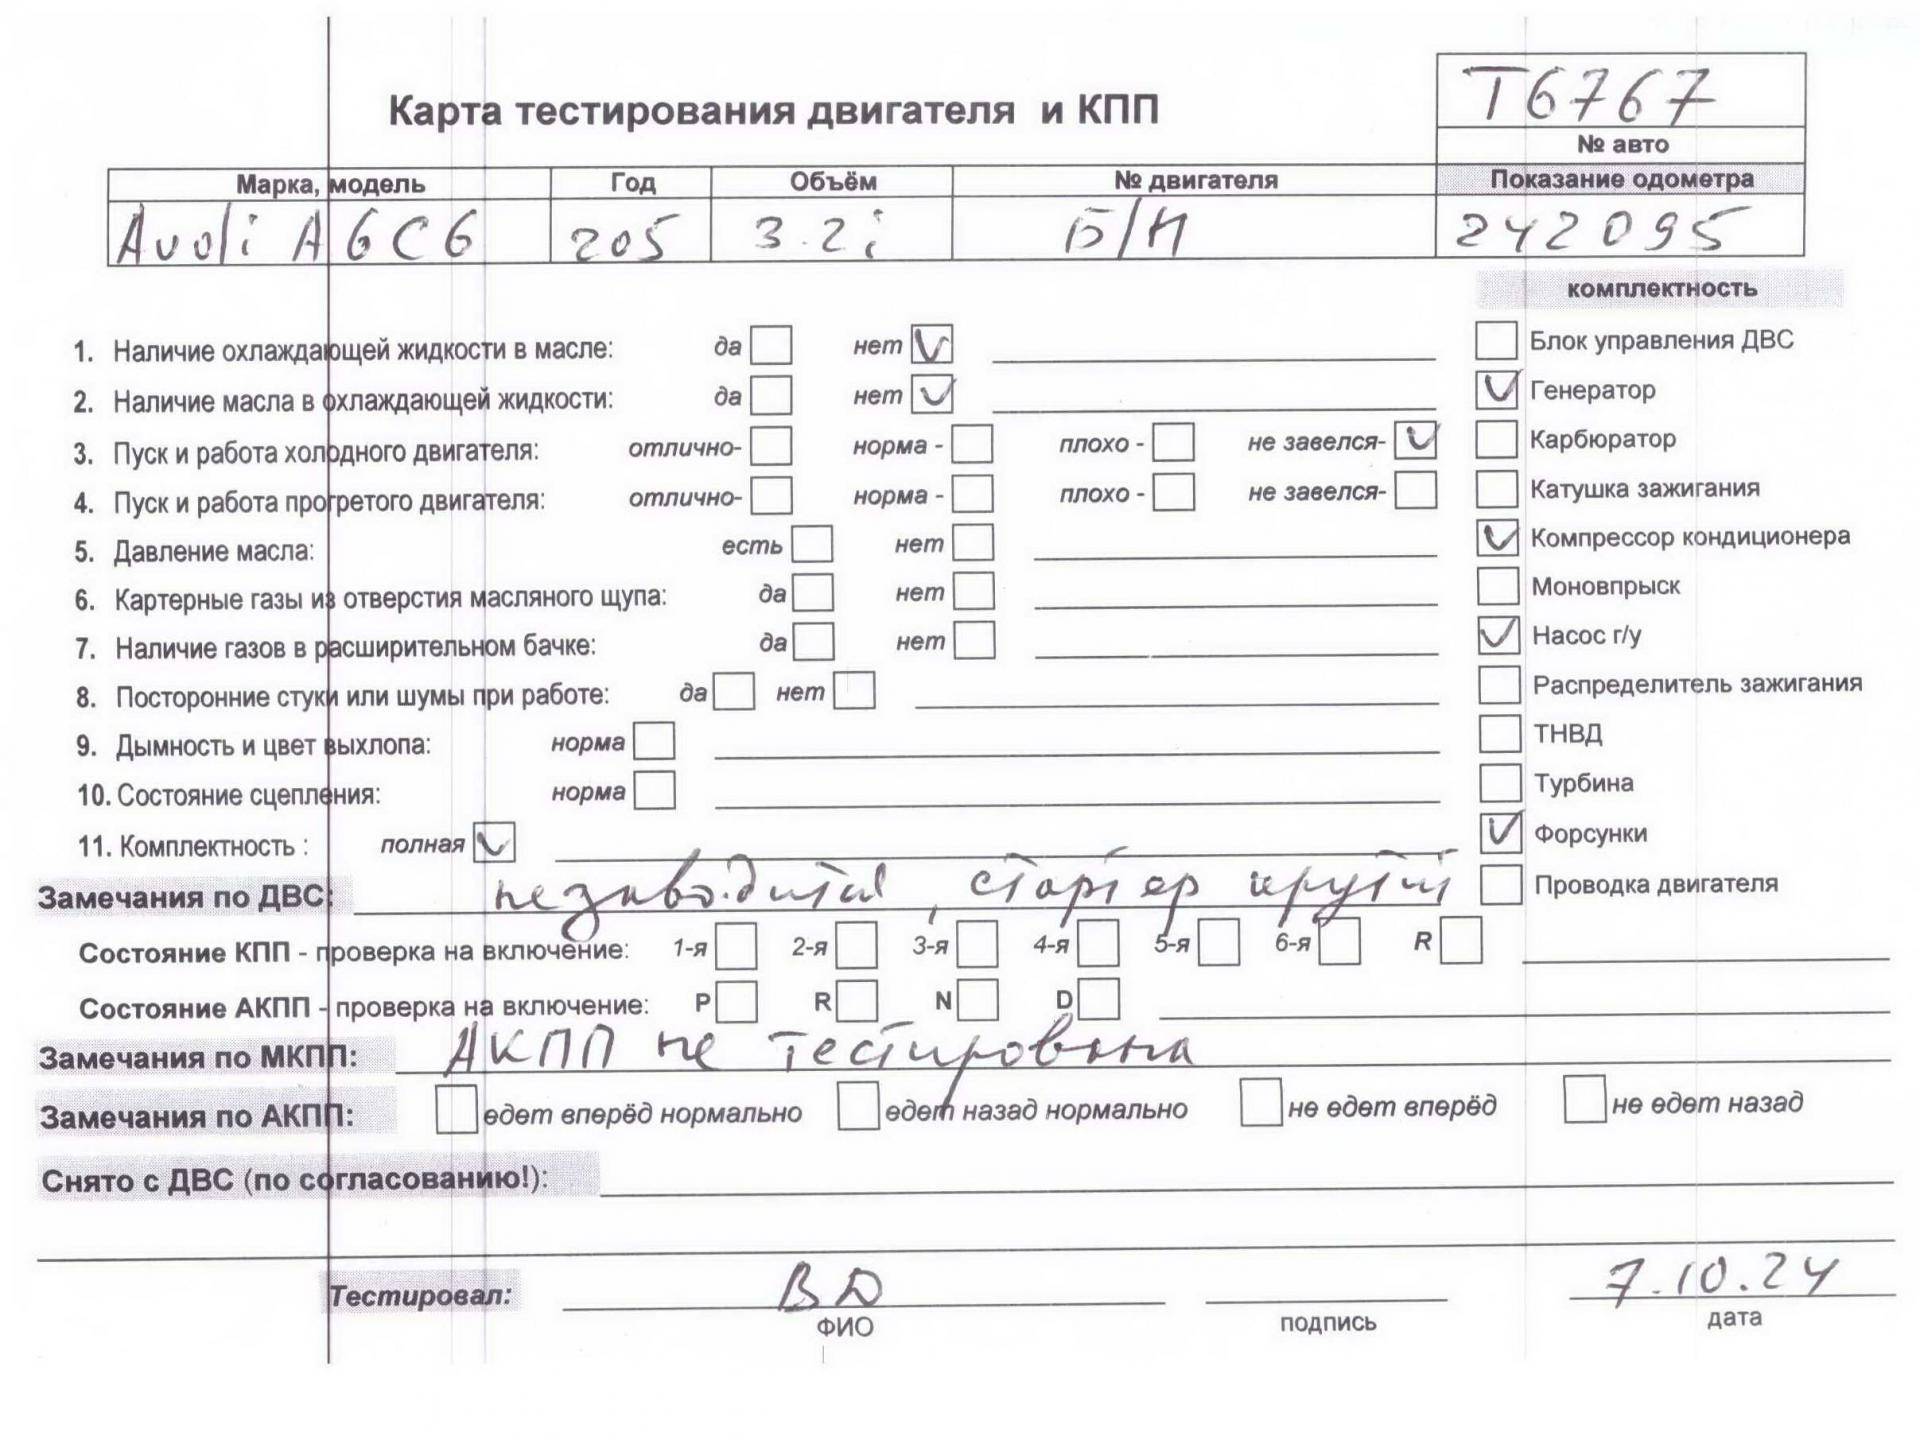 Т6767
Карта тестирования двигателя и КПП
№ авто
Марка, модель Год Объём № двигателя Показание одометра
Audi A6C6 205 3.2i Б/Н 242095
комплектность
1. Наличие охлаждающей жидкости в масле: да нет Блок управления ДВС
2. Наличие масла в охлаждающей жидкости: да нет Генератор
3. Пуск и работа холодного двигателя: отлично- норма - плохо - не завелся- Карбюратор
4. Пуск и работа прогретого двигателя: отлично- норма - плохо - не завелся- Катушка зажигания
5. Давление масла: есть нет Компрессор кондиционера
6. Картерные газы из отверстия масляного щупа: да нет Моновпрыск
7. Наличие газов в расширительном бачке: да нет Насос г/у
8. Посторонние стуки или шумы при работе: да нет Распределитель зажигания
9. Дымность и цвет выхлопа: норма ТНВД
10. Состояние сцепления: норма Турбина
11. Комплектность : полная Форсунки
Замечания по ДВС: незаводится, стартер крутит Проводка двигателя
Состояние КПП - проверка на включение: 1-я 2-я 3-я 4-я 5-я 6-я R
Состояние АКПП - проверка на включение: P R N D
Замечания по МКПП: АКПП не тестирована
Замечания по АКПП: едет вперёд нормально едет назад нормально не едет вперёд не едет назад
Снято с ДВС (по согласованию!):
Тестировал: ВД 7.10.24
ФИО подпись дата